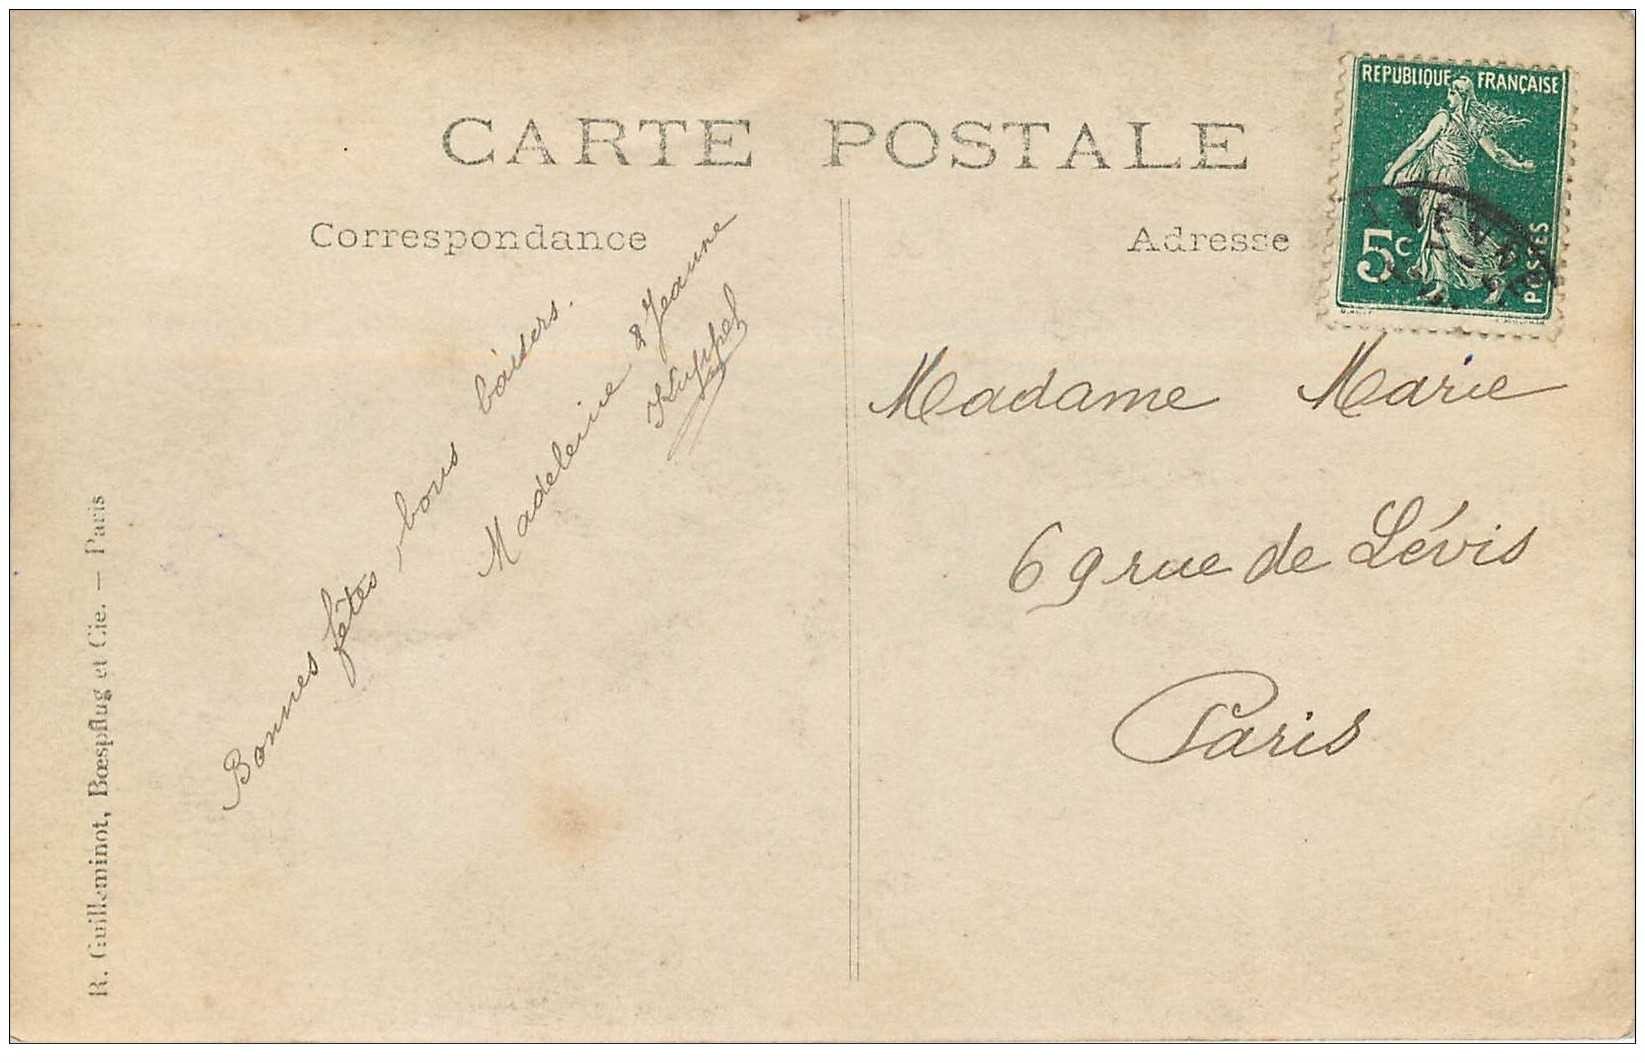 CARTE POSTALE
Correspondance
Adresse
REPUBLIQUE FRANÇAISE
5c
POSTES
Bonnes fêtes, bons baisers.
Madeleine & Jeanne
Madame Marie
69 rue de Lévis
Paris
R. Guilleminot, Bœspflug et Cie. — Paris